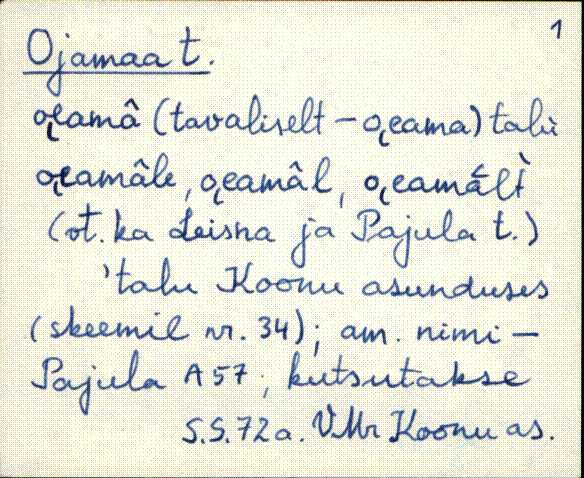 1
Ojamaa t.
o̯e̯amâ (tavaliselt – o̯e̯ama) talù
o̯e̯amâle, o̯e̯amâl, o̯e̯amált̀
(vt. ka Leisna ja Pajula t.)
'talu Koonu asunduses
(skeemil nr. 34); am. nimi –
Pajula A 57; kutsutakse
S.S. 72 a. VMr Koonu as.